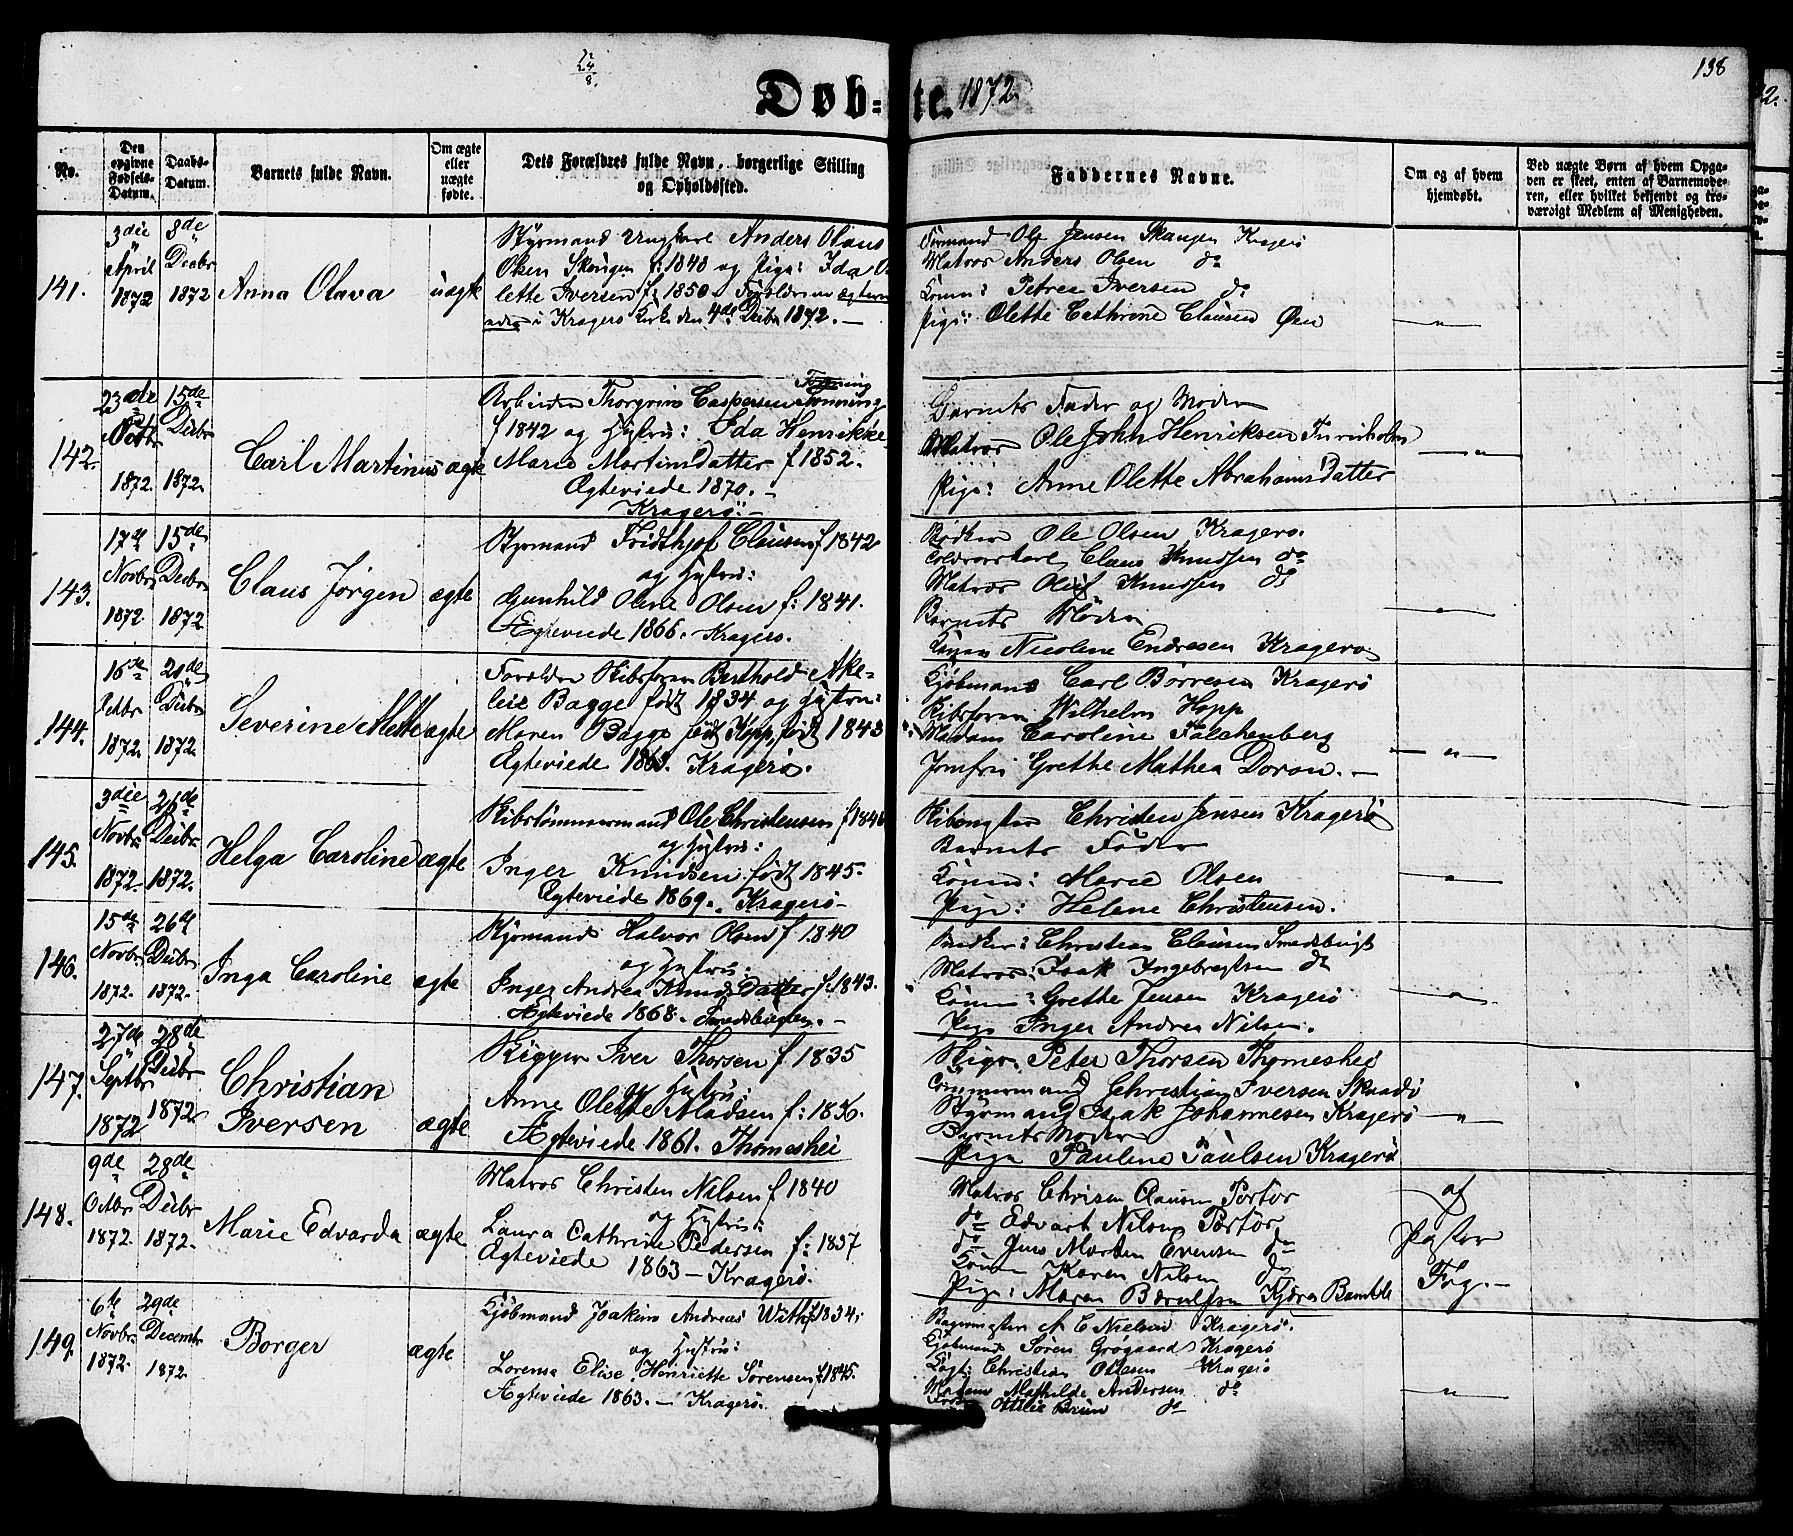 138
24
8.
Døb-te. 1872.
No.
Den opgivne Fødsels-Datum.
Daabs-Datum.
Barnets fulde Navn.
Om ægte eller uægte fødte.
Dets Forældres fulde Navn, borgerlige Stilling og Opholdssted.
Faddernes Navne.
Om og af hvem hjemdøbt.
Ved uægte Børn af hvem Opga-
ven er skeet, enten af Barnemode-
ren, eller hvilket bekjendt og tro-
værdigt Medlem af Menigheden.
141.
3die April 1872
8de Decbr 1872
Anna Olava
uægte
Styrmand Ungkarl Anders Olaus
Olsen Skougen f: 1848 og Pige: Ida O
lette Iversen f: 1850. Forældrene ægtevi
edes i Kragerø Kirke den 4de Decbr 1872. —
Ole Jensen Skaugen Kragerø
Matros Anders Olsen do
Konen: Petrea Iversen do
Pige: Olette Cathrine Clausen Øen
— " —
142.
23de Octbr 1872.
15de Decbr 1872.
Carl Martinus
ægte
Arbeider Thorgrim Caspersen
f 1842 og Hustru: Ida Henrikke
Marie Martinsdatter f 1852.
Ægteviede 1870. —
Kragerø. —
Barnets Fader og Moder
Matros Ole John Henriksen Furuholm
Pige: Anne Olette Abrahamsdatter
— " —
143.
17de Novbr 1872
15de Decbr 1872
Claus Jørgen
ægte
Styrmand Fridthjof Clausen f 1842
og Hustru:
Gunhild Oline Olsen f: 1841.
Ægteviede 1866. Kragerø.
Bødker Ole Olsen Kragerø.
Claus Knudsen do
Matros Oluf Knudsen do
Barnets Moder
Konen Nicoline Endresen Kragerø
— " —
144.
16de Octbr 1872.
Decbr 1872
Severine Mette
ægte
Forældre Skibsfører Berthold Ake-
leie Bagge født 1834 og Hustru:
Maren Bagge født Hopp, født 1843
Ægteviede 1868. Kragerø.
Kjøbmand Carl Børresen Kragerø
Skibsfører Wilhelm Hopp
Madam Caroline Falchenberg
Jomfru Grethe Mathea Doron. —
— " —
145.
3die Novbr 1872.
26de Decbr 1872.
Helga Caroline
ægte
Skibstømmermand Ole Christensen f 1846
og Hustru:
Inger Knudsen født 1845.
Ægteviede 1869. Kragerø.
Christen Jensen Kragerø
Barnets Fader
Konen: Marie Olsen
Pige: Helene Christensen.
— " —
146.
15de Novbr 1872.
26de Decbr 1872.
Inga Caroline
ægte
Styrmand Halvor Olsen f 1840
og Hustru:
Inger Andrea Knudsdatter f. 1843.
Ægteviede 1868. Smedsbugten. —
Christian Clausen Smedsbugt
Matros: Isak Ingebregtsen do
Konen: Grethe Jensen Kragerø
Pige Inger Andrea Nilsen.
— " —
147.
27de Septbr 1872
28de Decbr 1872
Christian
Iversen
ægte
Rigger Iver Thorsen f 1835
og Hustru:
Anne Olette Madsen f: 1836.
Ægteviede 1861. Thomeshei
Peter Thorsen Thomeshei
Tømmermand Christian Iversen Skaadø
Styrmand Isak Johannesen Kragerø
Barnets Moder
Pige Pauline Paulsen Kragerø
— " —
148.
9de Octbr 1872.
28de Decbr 1872.
Marie Edvarda
ægte
Matros Christen Nilsen f 1840
og Hustru:
Laura Cathrine Pedersen f: 1837
Ægteviede 1863 — Kragerø.
Matros Clausen Portør
do Edvart Nilsen Portør
do Jens Morten Evensen do
Konen Karen Nilsen do
Pige: Maren Bamble
af
Pastor
Fog. —
149.
6te Novbr 1872.
29de Decembr 1872.
Borger
ægte
Kjøbmand Joakim Andreas With f 1834.
og Hustru:
Lorense Elise Henriette Sørensen f 1845.
Ægteviede 1863. — Kragerø.
N C Nielsen Kragerø.
Kjøbmand Søren Grøgaard Kragerø
Christian Olsen Kragerø
Madam Mathilde Andersen do
Ottilie Bruun do
— " —